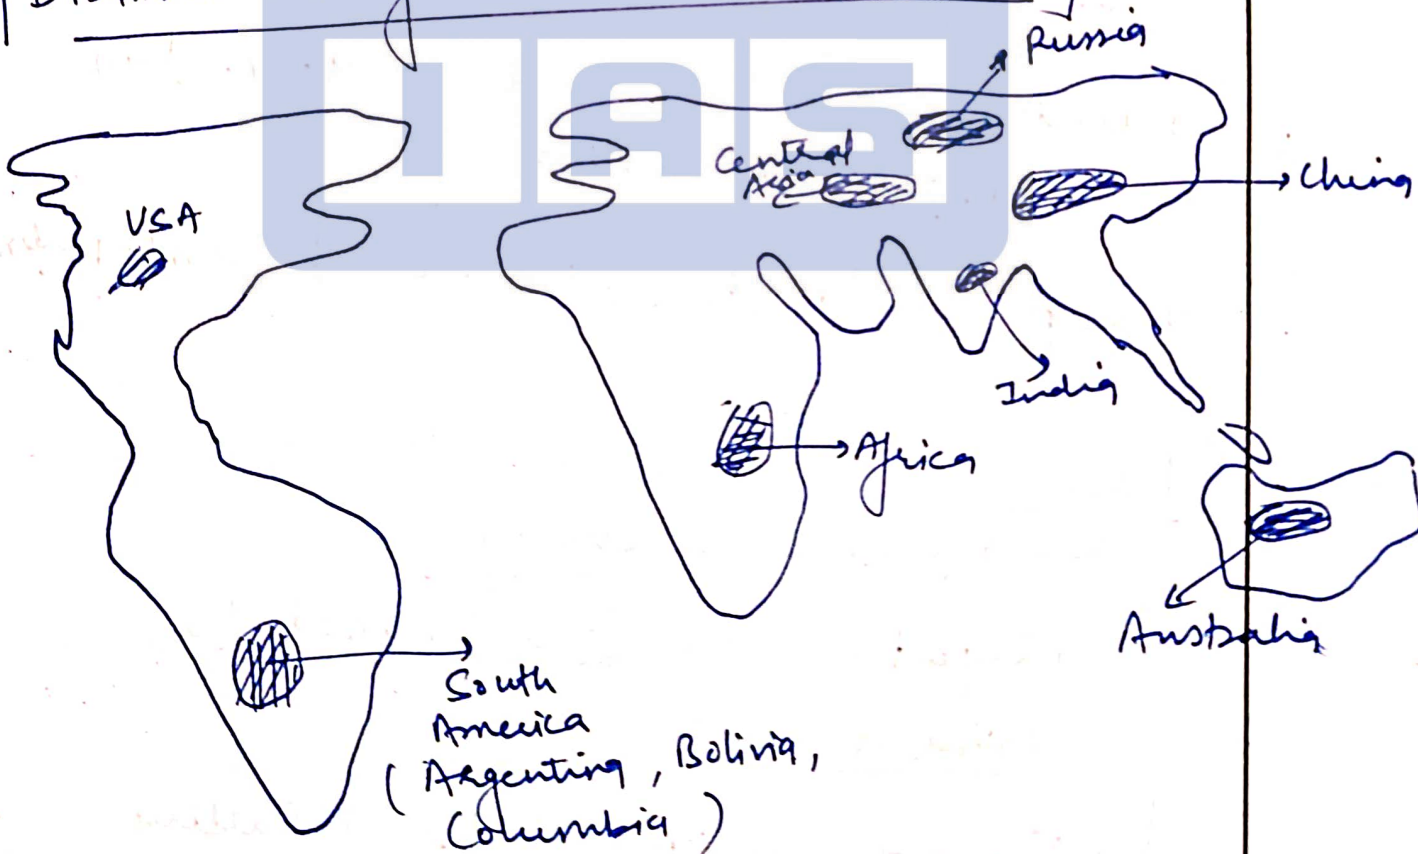 IAS
Russia
Central
Asia
China
USA
India
Africa
Australia
South
America
(Argentina, Bolivia,
Columbia)